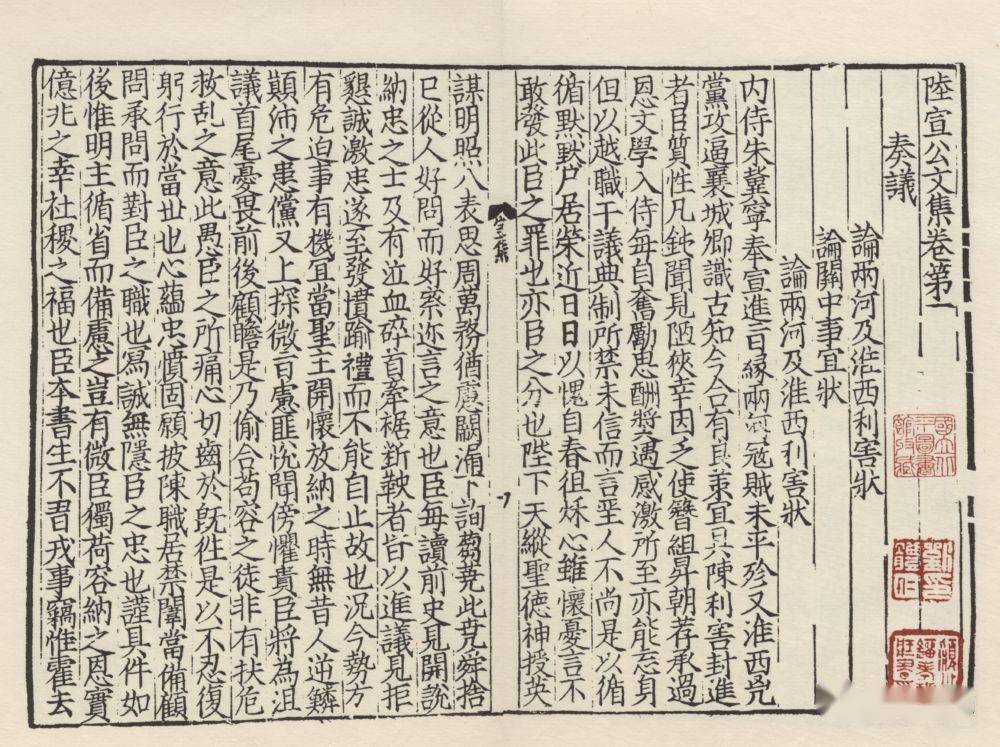 陸宣公文集卷第一
奏議
論兩河及淮西利害狀
論關中事宜狀
論兩河及淮西利害狀
内侍朱冀寧奉宣進旨緣兩河寇賊未平殄又淮西兇
黨攻逼襄城卿識古知今合有良策宜具陳利害封進
者臣質性凡鈍聞見陋狹幸因乏使簪組昇朝荐承過
恩文學入侍每自奮勵思酬獎遇感激所至亦能忘身
但以越職干議典制所禁未信而言聖人不尚是以循
循默默尸居榮近日日以愧自春徂秋心雖懷憂言不
敢發此臣之罪也亦臣之分也陛下天縱聖德神授英
謀明照八表思周萬務猶慮闕漏下詢蒭蕘此堯舜捨
已從人好問而好察迩言之意也臣每讀前史見開説
納忠之士及有泣血碎首牽裾斷鞅者皆以進議見拒
懇誠激忠遂至發憤踰禮而不能自止故也況今勢方
有危迫事有機宜當聖主開懷放納之時無昔人逆鱗
顛沛之患儻又上探微旨慮匪悦聞傍懼貴臣將為沮
議首尾憂畏前後顧瞻是乃偷合苟容之徒非有扶危
救乱之意此愚臣之所痛心切齒於既往是以不忍復
躬行於當丗也心蘊忠憤固願披陳職居禁闈當備顧
問承問而對臣之職也寫誠無隱臣之忠也謹具件如
後惟明主循省而備慮之豈有微臣獨荷容納之恩實
億兆之幸社稷之福也臣本書生不習戎事竊惟霍去